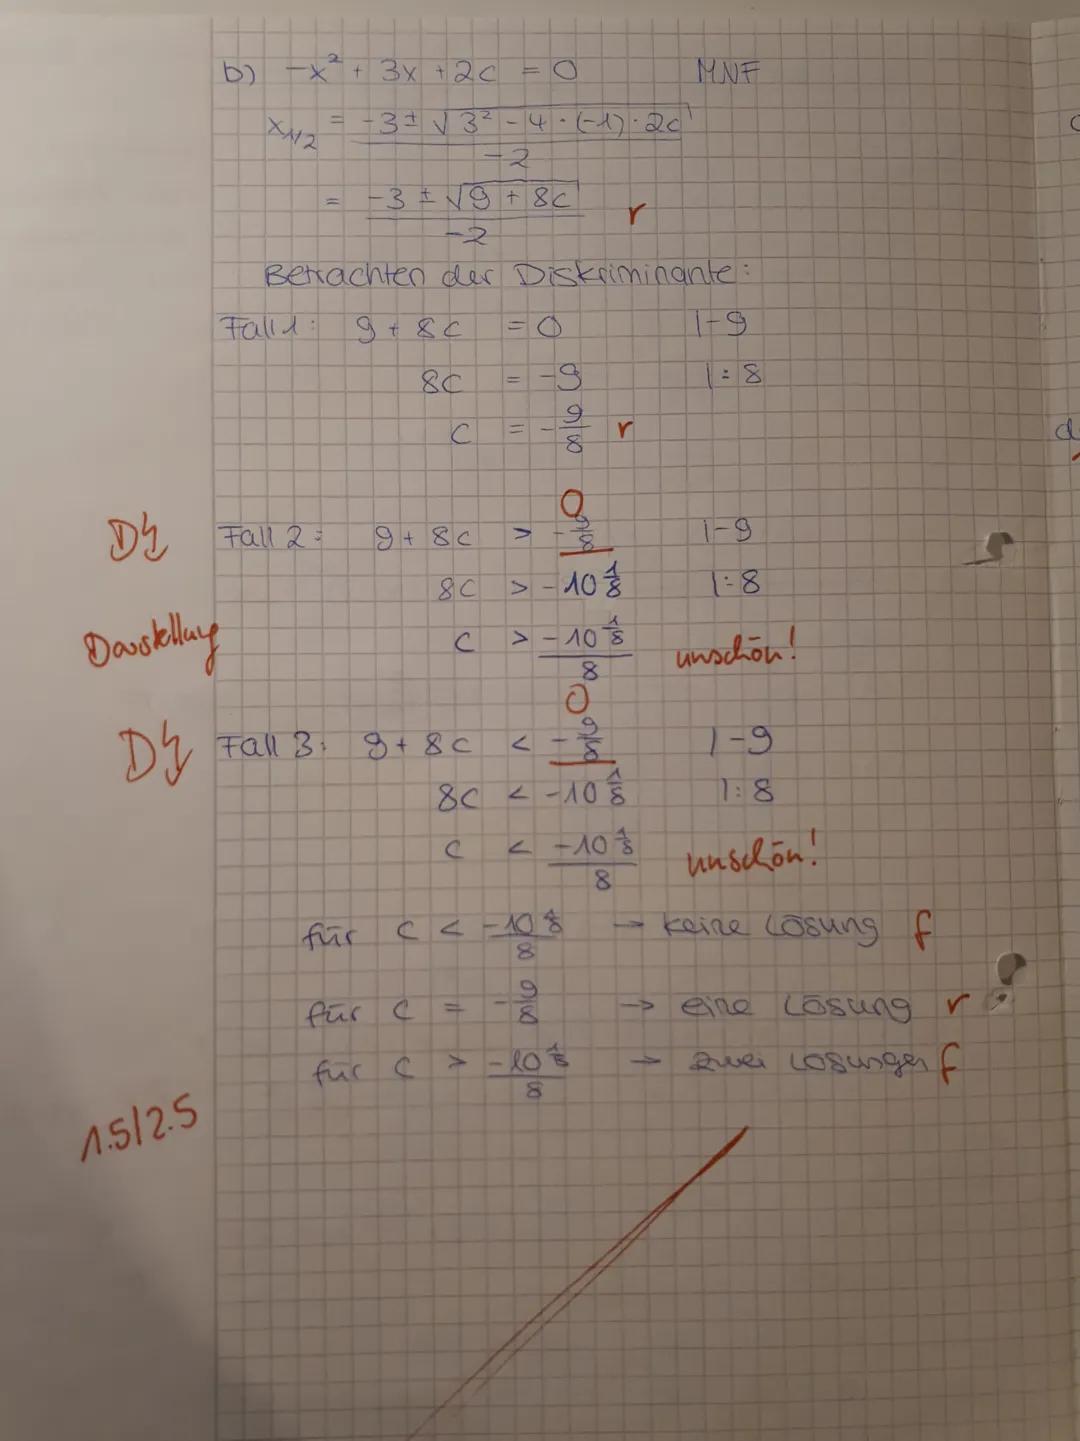 b) -x² + 3x + 2c = 0 MNF
x₁/₂ = -3 ± √3² - 4 · (-1) · 2c
-2
= -3 ± √9 + 8c r
-2
Betrachten der Diskriminante:
Fall 1: 9 + 8c = 0 |-9
8c = -9 |:8
c = -9/8 r
0
D↯ Fall 2: 9 + 8c > -9/8 |-9
8c > -10 1/8 |:8
Darstellung c > -10 1/8 unschön!
8
0
D↯ Fall 3: 9 + 8c < -9/8 |-9
8c < -10 1/8 |:8
c < -10 1/8 unschön!
8
für c < -10 1/8 → keine Lösung f
8
für c = -9/8 → eine Lösung r
für c > -10 1/8 → zwei Lösungen f
8
1.5/2.5